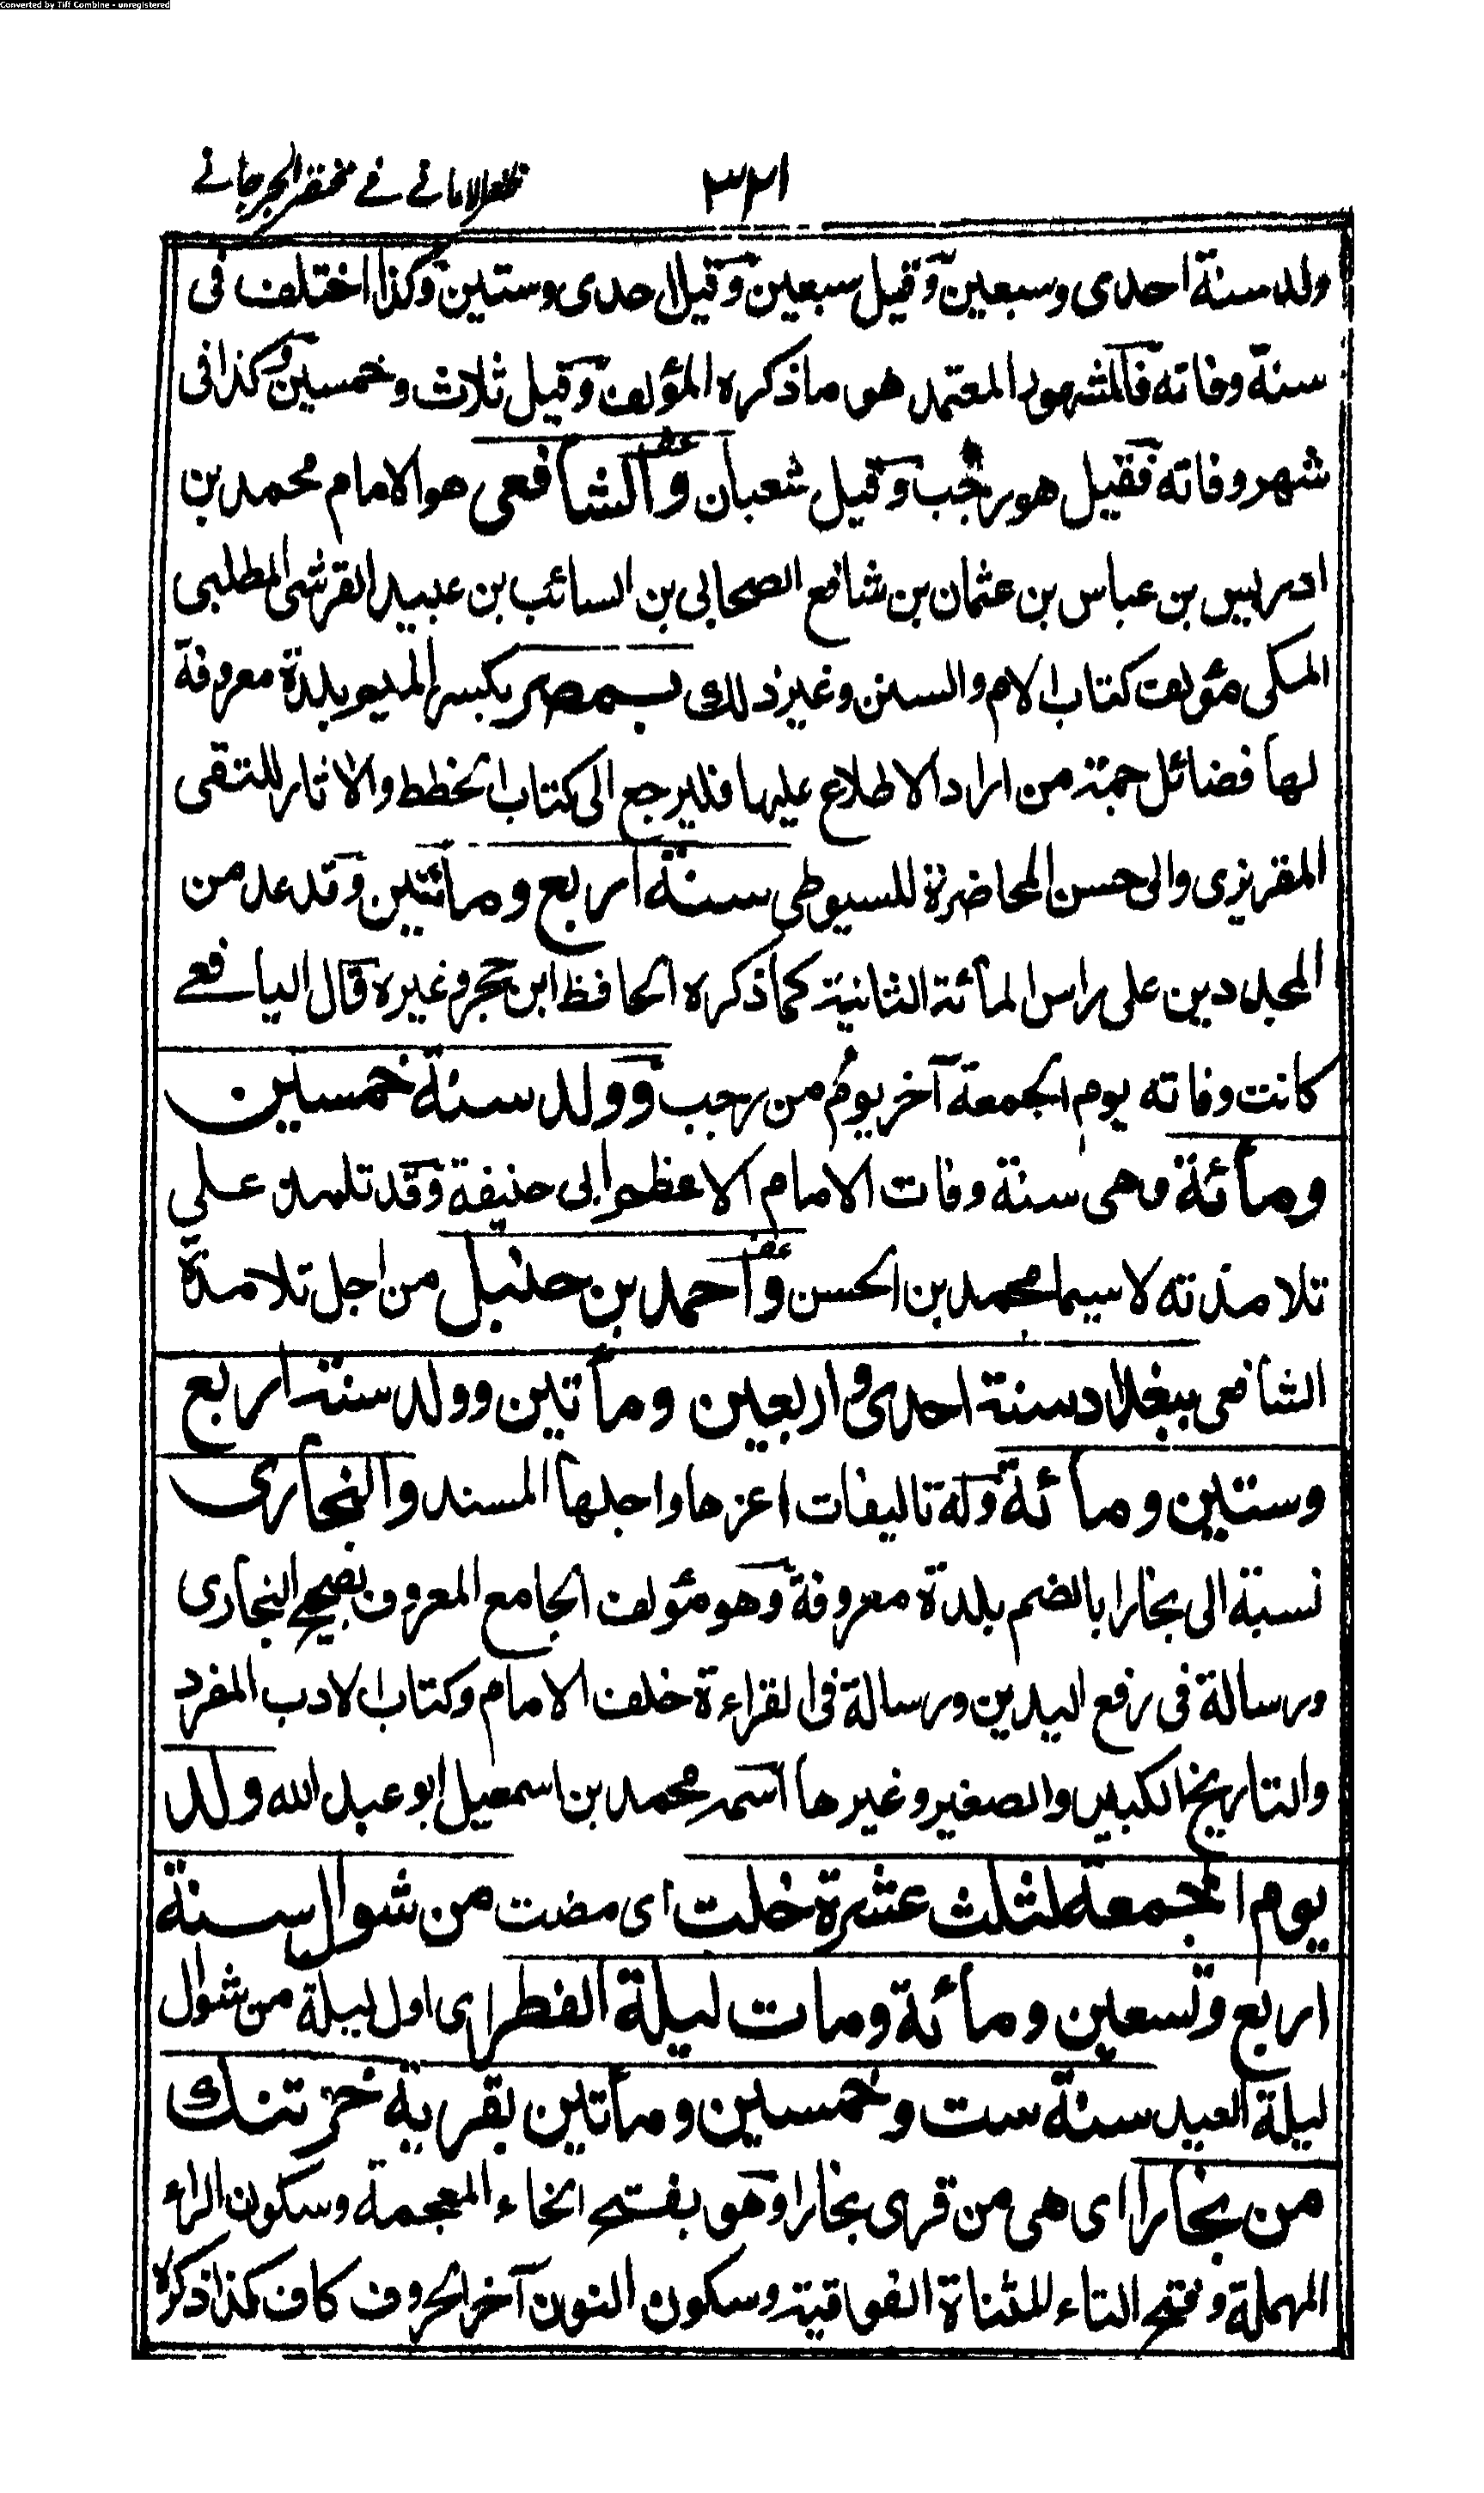 Converted by Tiff Combine - unregistered
٣٣١ ظفر الامانے فے مختصر الجرجانے
ولد سنة احدى وسبعين وقيل سبعين وقيل احدى وستين وكذا اختلف فى
سنة وفاته فالمشهور المعتمد هو ماذكره المؤلف وقيل ثلاث وخمسين وكذا فى
شهر وفاته فقيل هو رجب وقيل شعبان والشافعى هو الامام محمد بن
ادريس بن عباس بن عثمان بن شافع الصحابى بن السائب بن عبيد القرشى المطلبى
المكى مؤلف كتاب الام والسنن وغير ذلك بمصر بكسر الميم بلدة معروفة
لها فضائل جمة من اراد الاطلاع عليها فليرجع الى كتاب الخطط والاثار للتقى
المقريزى والى حسن المحاضرة للسيوطى سنة اربع ومأتين وقد عد من
المجددين على راس المائة الثانية كما ذكره الحافظ ابن حجر وغيره قال اليافعے
كانت وفاته يوم الجمعة آخر يوم من رجب وولد سنة خمسين
ومائة وهى سنة وفات الامام الاعظم ابى حنيفة وقد تلمذ على
تلامذته لاسيما محمد بن الحسن واحمد بن حنبل من اجل تلامذة
الشافعى ببغداد سنة احدى واربعين ومأتين وولد سنة اربع
وستين ومائة وله تاليفات اعزها واجلها المسند والبخارى
نسبة الى بخارا بالضم بلدة معروفة وهو مؤلف الجامع المعروف بصحيح البخارى
ورسالة فى رفع اليدين ورسالة فى القراءة خلف الامام وكتاب الادب المفرد
والتاريخ الكبير والصغير وغيرها اسمه محمد بن اسمعيل ابو عبد الله ولد
يوم الجمعة لثلث عشرة خلت اى مضت من شوال سنة
اربع وتسعين ومائة ومات ليلة الفطر اى اول ليلة من شوال
ليلة العيد سنة ست وخمسين ومأتين بقرية خرتنك
من بخارا اى هى من قرى بخارا وهو بفتح الخاء المعجمة وسكون الراء
المهملة وفتح التاء للمثناة الفوقية وسكون النون آخر الحروف كاف كذا ذكره